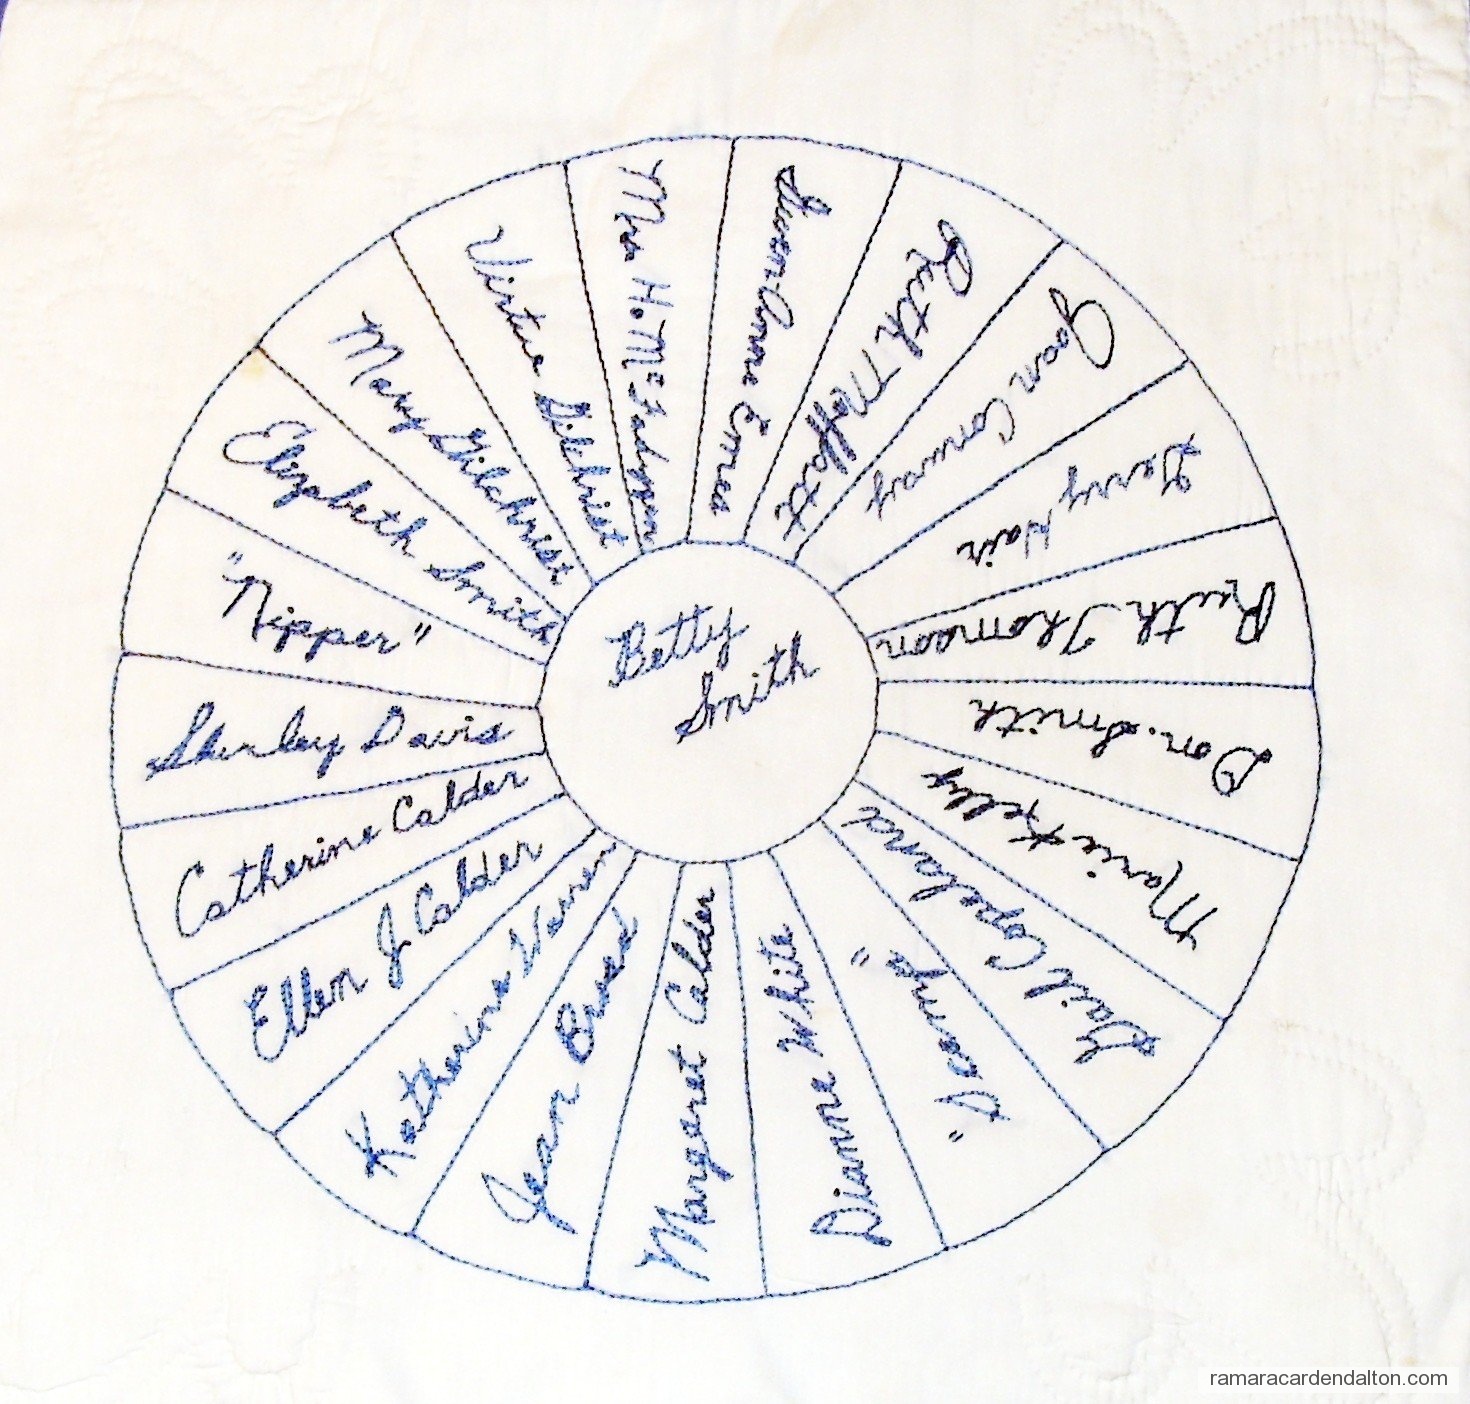 Betty
Smith
Mrs H. McFadyen
Gwen-Anne Emes
Ruth Moffatt
Joan Conway
Gerry Hair
Ruth Thomson
Don. Smith
Marie Kelly
Gail Copeland
Dianne White
Margaret Calder
Jean
Katherine Warren
Ellen J Calder
Catherine Calder
Shirley Davis
"Nipper"
Elizabeth Smith
Mary Gilchrist
Virtue Gilchrist
ramaracardendalton.com